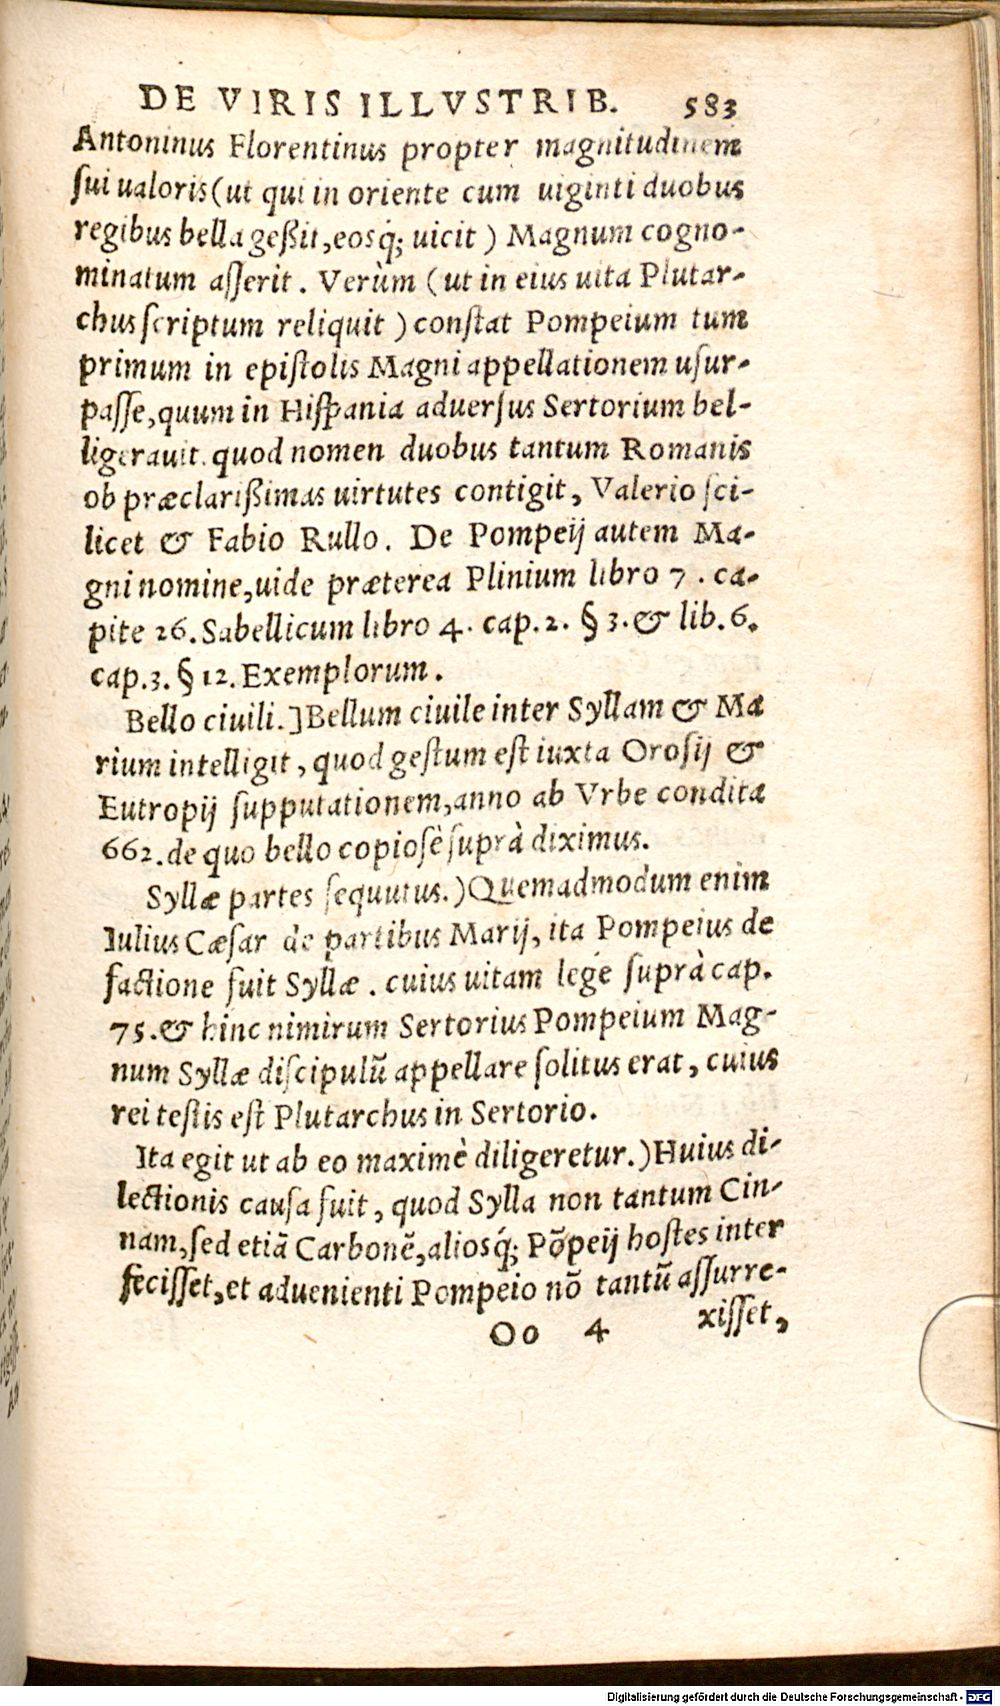 DE VIRIS ILLVSTRIB. 583
Antoninus Florentinus propter magnitudinem
sui ualoris (ut qui in oriente cum uiginti duobus
regibus bella geßit, eosq́; uicit) Magnum cogno-
minatum asserit. Verùm (ut in eius uita Plutar-
chus scriptum reliquit) constat Pompeium tum
primum in epistolis Magni appellationem usur-
passe, quum in Hispania aduersus Sertorium bel-
ligerauit. quod nomen duobus tantum Romanis
ob præclarißimas uirtutes contigit, Valerio sci-
licet & Fabio Rullo. De Pompeij autem Ma-
gni nomine, uide præterea Plinium libro 7. ca-
pite 26. Sabellicum libro 4. cap. 2. § 3. & lib. 6.
cap. 3. § 12. Exemplorum.
Bello ciuili.] Bellum ciuile inter Syllam & Ma
rium intelligit, quod gestum est iuxta Orosij &
Eutropij supputationem, anno ab Vrbe condita
662. de quo bello copiosè suprà diximus.
Syllæ partes sequutus.) Quemadmodum enim
Iulius Cæsar de partibus Marij, ita Pompeius de
factione fuit Syllæ. cuius uitam lege suprà cap.
75. & hinc nimirum Sertorius Pompeium Mag-
num Syllæ discipulũ appellare solitus erat, cuius
rei testis est Plutarchus in Sertorio.
Ita egit ut ab eo maximè diligeretur.) Huius di-
lectionis causa fuit, quod Sylla non tantum Cin-
nam, sed etiã Carbonẽ, aliosq́; Põpeij hostes inter
fecisset, et aduenienti Pompeio nõ tantũ assurre-
Oo 4 xisset,
Digitalisierung gefördert durch die Deutsche Forschungsgemeinschaft - DFG